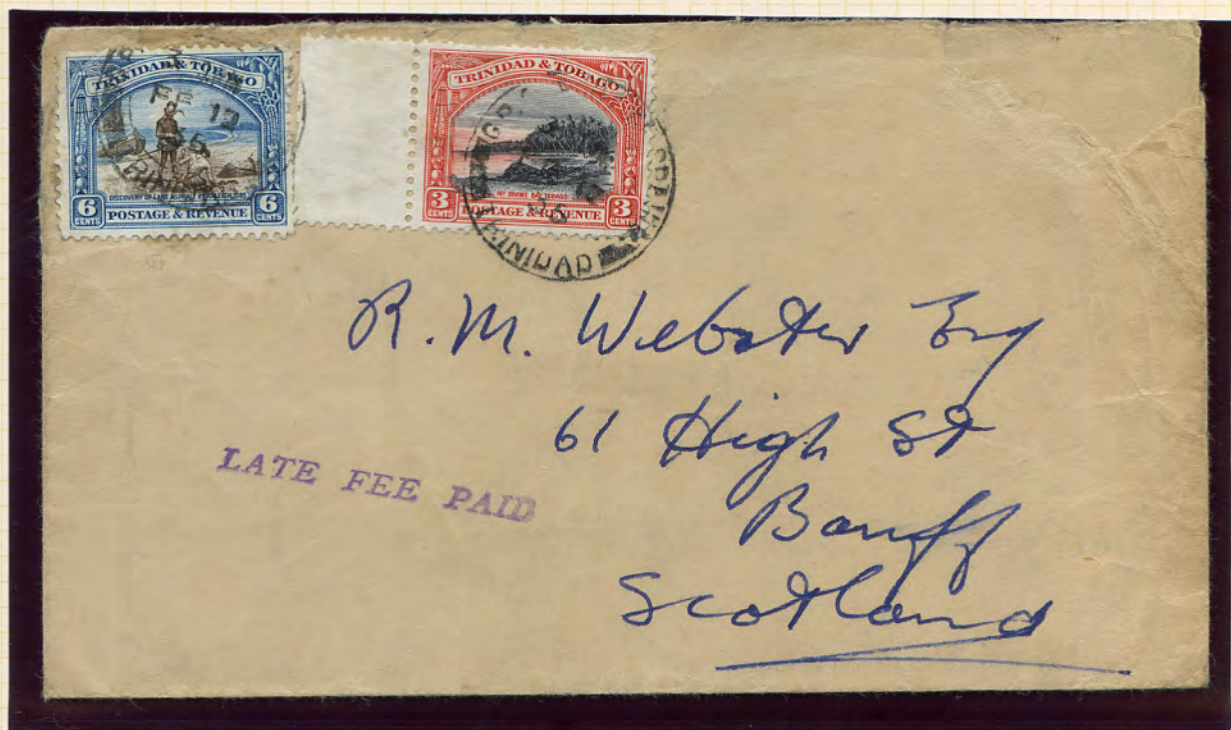 TRINIDAD & TOBAGO
FE 12
6 CENTS
POSTAGE & REVENUE
6 CENTS
TRINIDAD & TOBAGO
MT IRVINE BAY, TOBAGO
3 CENTS
POSTAGE & REVENUE
3 CENTS
TRINIDAD
R. M. Webster Esq
61 High St
Banff
Scotland
LATE FEE PAID